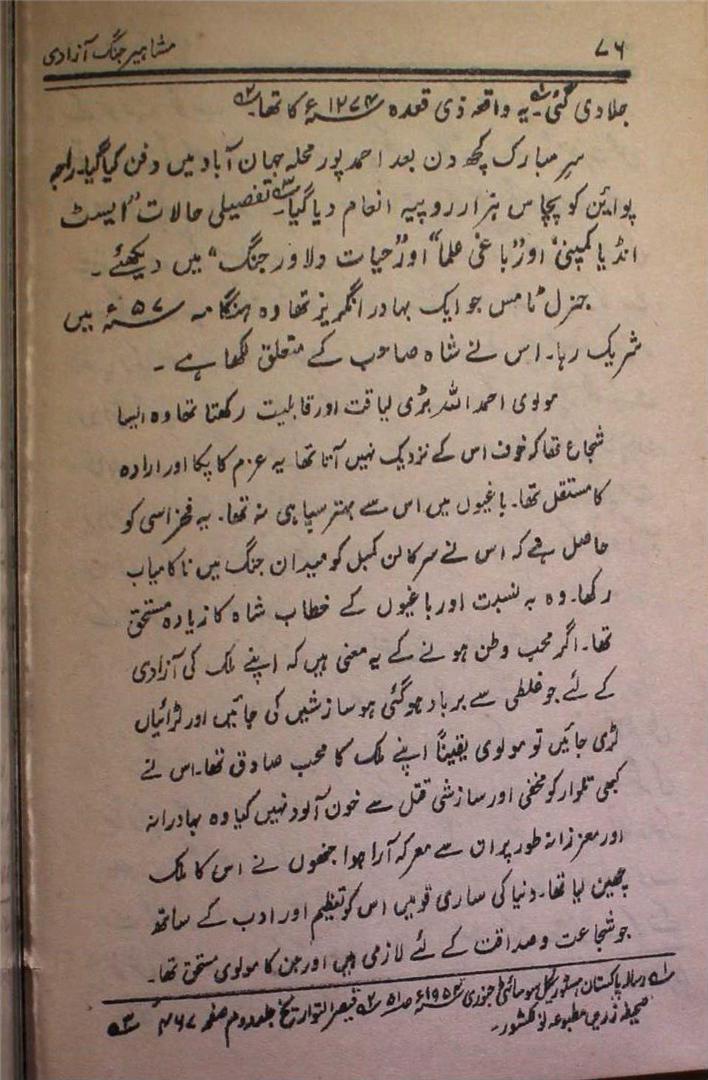 ۷۶ مشاہیر جنگ آزادی
جلا دی گئی۔ یہ واقعہ ذی قعدہ ۱۲۷۴ء کا تھا۔
سر مبارک کچھ دن بعد احمد پور محلہ جہان آباد میں دفن کیا گیا۔ راجہ
پوائین کو پچاس ہزار روپیہ انعام دیا گیا۔ تفصیلی حالات "ایسٹ
انڈیا کمپنی" اور "باغی علما" اور "حیات دلاور جنگ" میں دیکھئے۔
جنرل ٹامس جو ایک بہادر انگریز تھا وہ ہنگامہ ۵۷ء میں
شریک رہا۔ اس نے شاہ صاحب کے متعلق لکھا ہے۔
مولوی احمد اللہ بڑی لیاقت اور قابلیت رکھتا تھا وہ ایسا
شجاع تھا کہ خوف اس کے نزدیک نہیں آتا تھا یہ عزم کا پکا اور ارادہ
کا مستقل تھا۔ باغیوں میں اس سے بہتر سپاہی نہ تھا۔ یہ فخر اسی کو
حاصل ہے کہ اس نے سر کالن کمبل کو میدان جنگ میں ناکامیاب
رکھا۔ وہ بہ نسبت اور باغیوں کے خطاب شاہ کا زیادہ مستحق
تھا۔ اگر محب وطن ہونے کے یہ معنی ہیں کہ اپنے ملک کی آزادی
کے لئے جو غلطی سے برباد ہوگئی ہو سازشیں کی جائیں اور لڑائیاں
لڑی جائیں تو مولوی یقیناً اپنے ملک کا محب صادق تھا۔ اس نے
کبھی تلوار کو مخفی اور سازشی قتل سے خون آلود نہیں کیا وہ بہادرانہ
اور معززانہ طور پر ان سے معرکہ آرا ہوا جنھوں نے اس کا ملک
چھین لیا تھا۔ دنیا کی ساری قومیں اس کو تعظیم اور ادب کے ساتھ
جو شجاعت و صداقت کے لئے لازمی ہیں اور جن کا مولوی مستحق تھا۔
۱؎ رسالہ پاکستان ہسٹوریکل سوسائٹی جنوری ۱۹۵۳ء ص ۵۱ ۲؎ قیصر التواریخ جلد دوم صفحہ ۴۶۷ ۳؎
صحیفہ زریں مطبوعہ نولکشور۔